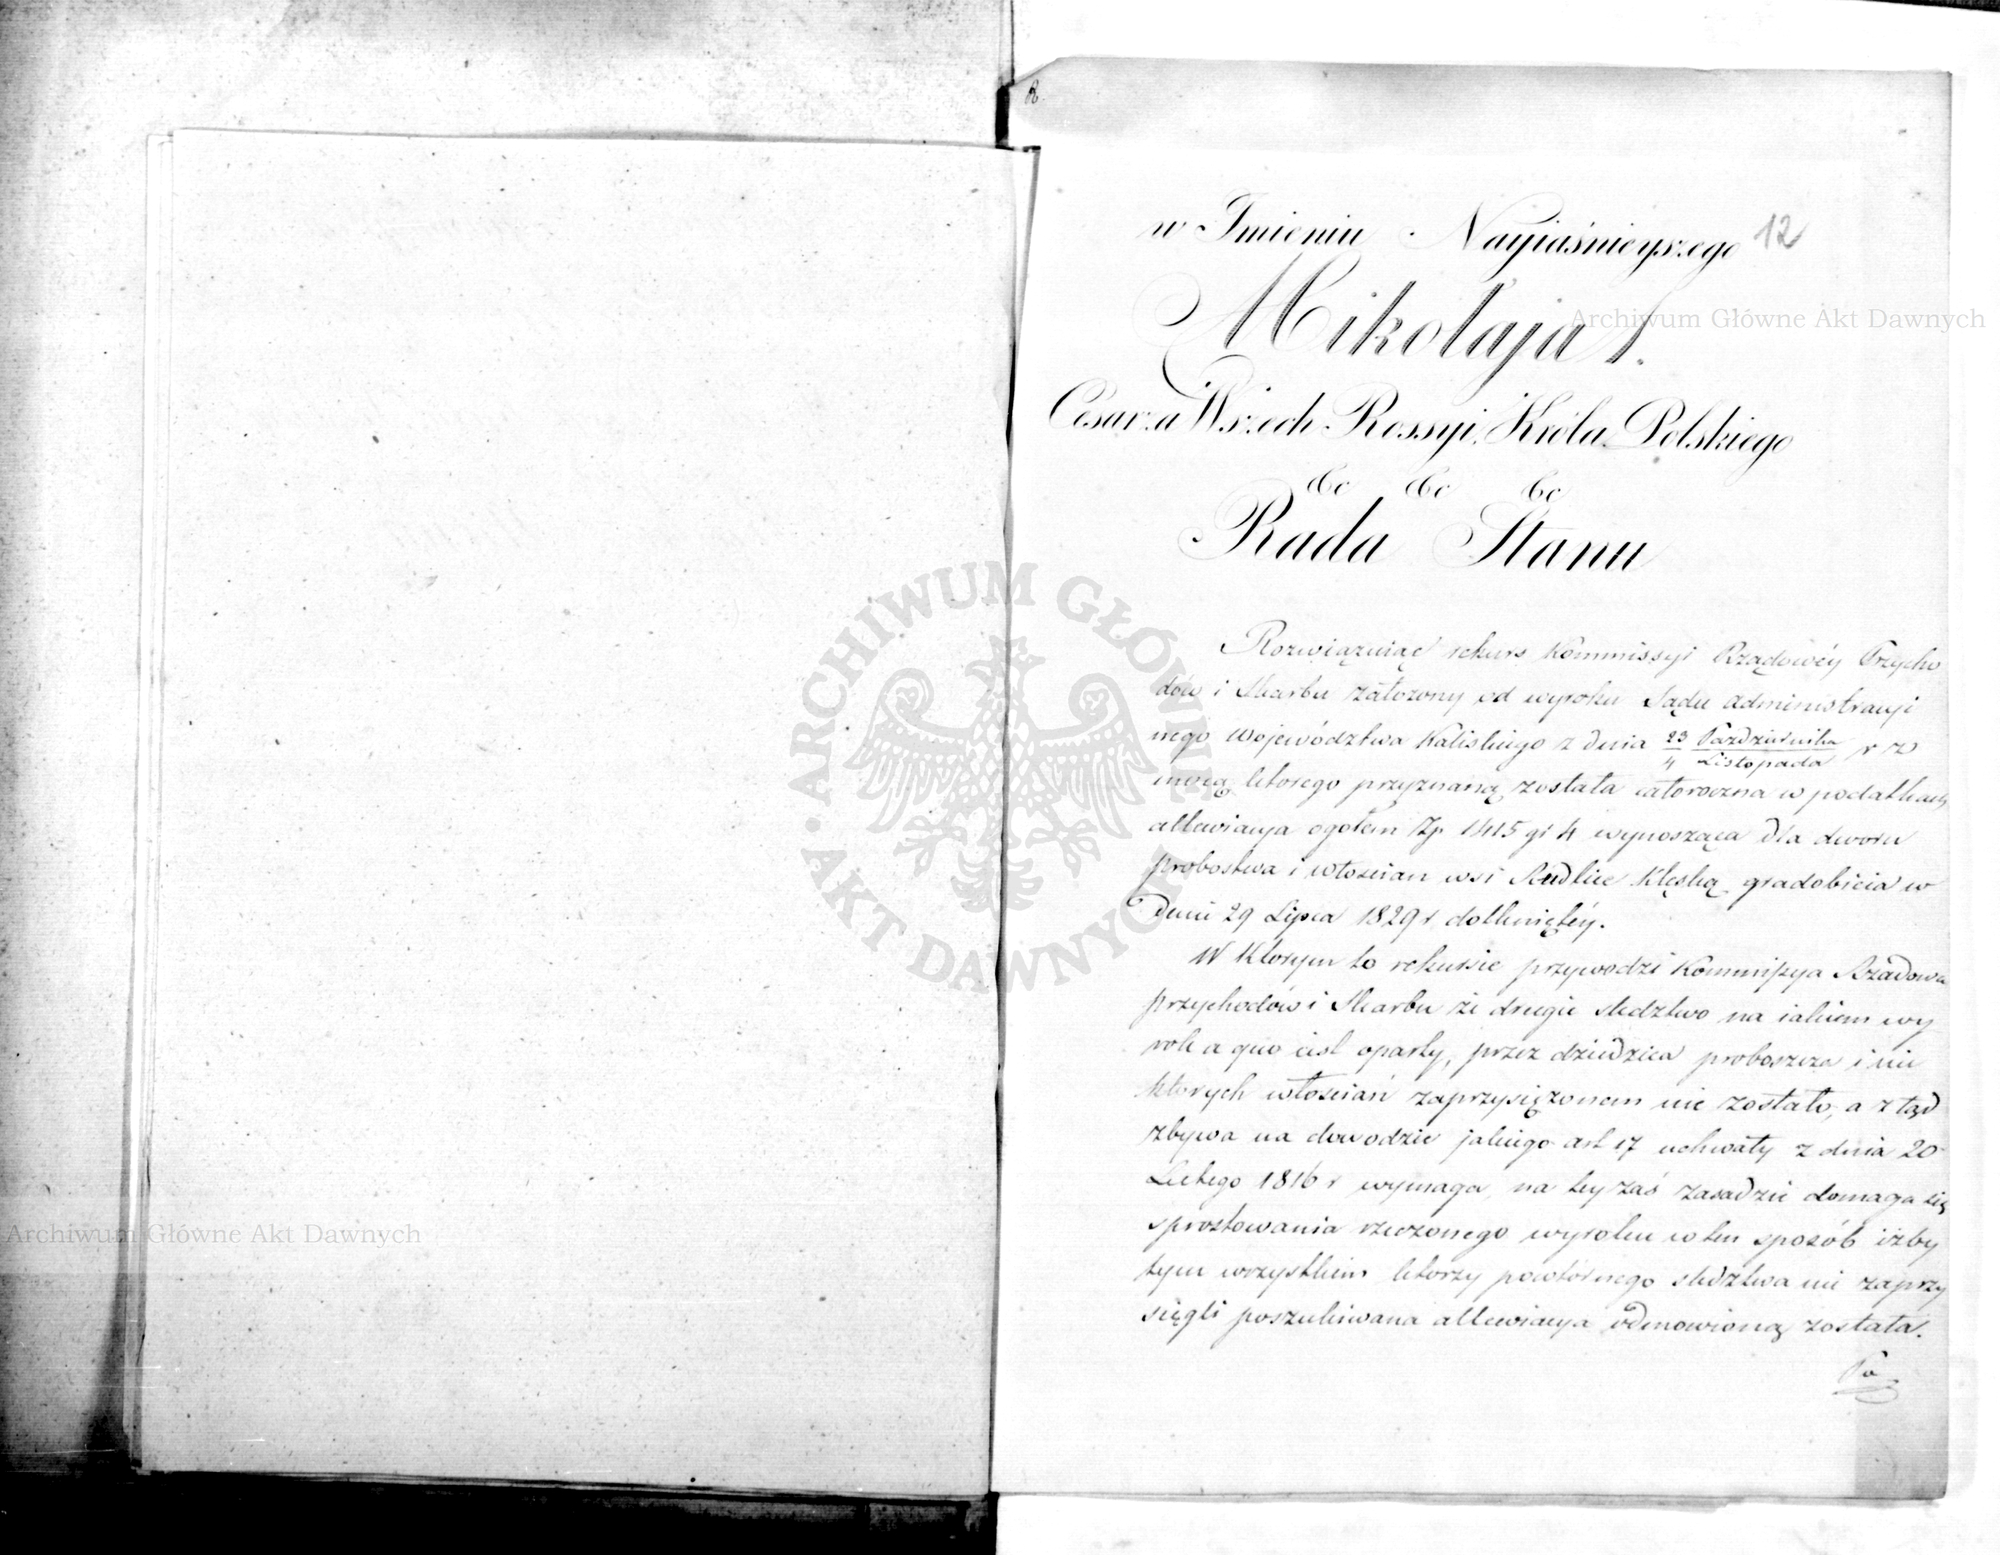 R.
12
w Imieniu Nayiaśnieyszego
Mikołaja I.
Cesarza Wszech Rossyi, Króla Polskiego
&c &c &c
Rada Stanu
Rozwiązuiąc rekurs Kommissyi Rządowéy Przycho
dów i Skarbu założony od wyroku Sądu Administracyi
nego Województwa Kaliskiego z dnia 23 Października / 4 Listopada r z
mocą którego przyznaną została całoroczna w podatkach
allewiacya ogołem Zp 1415 gr 4 wynosząca dla dworu
probostwa i włościan wsi Rudlice klęską gradobicia w
dniu 29 Lipca 1829 r dotkniętéy.
W którym to rekursie przywodzi Kommissya Rządowa
Przychodów i Skarbu że drugie śledztwo na iakiem wy
rok a quo iest oparty, przez dziedzica proboszcza i nie
których włościan zaprzysiężonem nie zostało, a z tąd
zbywa na dowodzie jakiego art 17 uchwały z dnia 20
Lutego 1816 r wymaga, na tey zaś zasadzie domaga się
sprostowania rzeczonego wyroku w ten sposób iżby
tym wszystkiem którzy powtórnego śledztwa nie zaprzy
sięgli poszukiwana allewiacya odmowioną została.
Po
Archiwum Główne Akt Dawnych
Archiwum Główne Akt Dawnych
ARCHIWUM GŁÓWNE AKT DAWNYCH